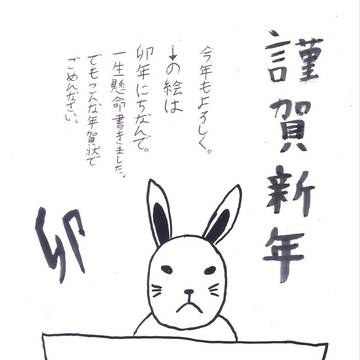 謹賀新年
今年もよろしく。
↓の絵は
卯年にちなんで。
一生懸命書きました。
でもこんな年賀状で
ごめんなさい。
卯